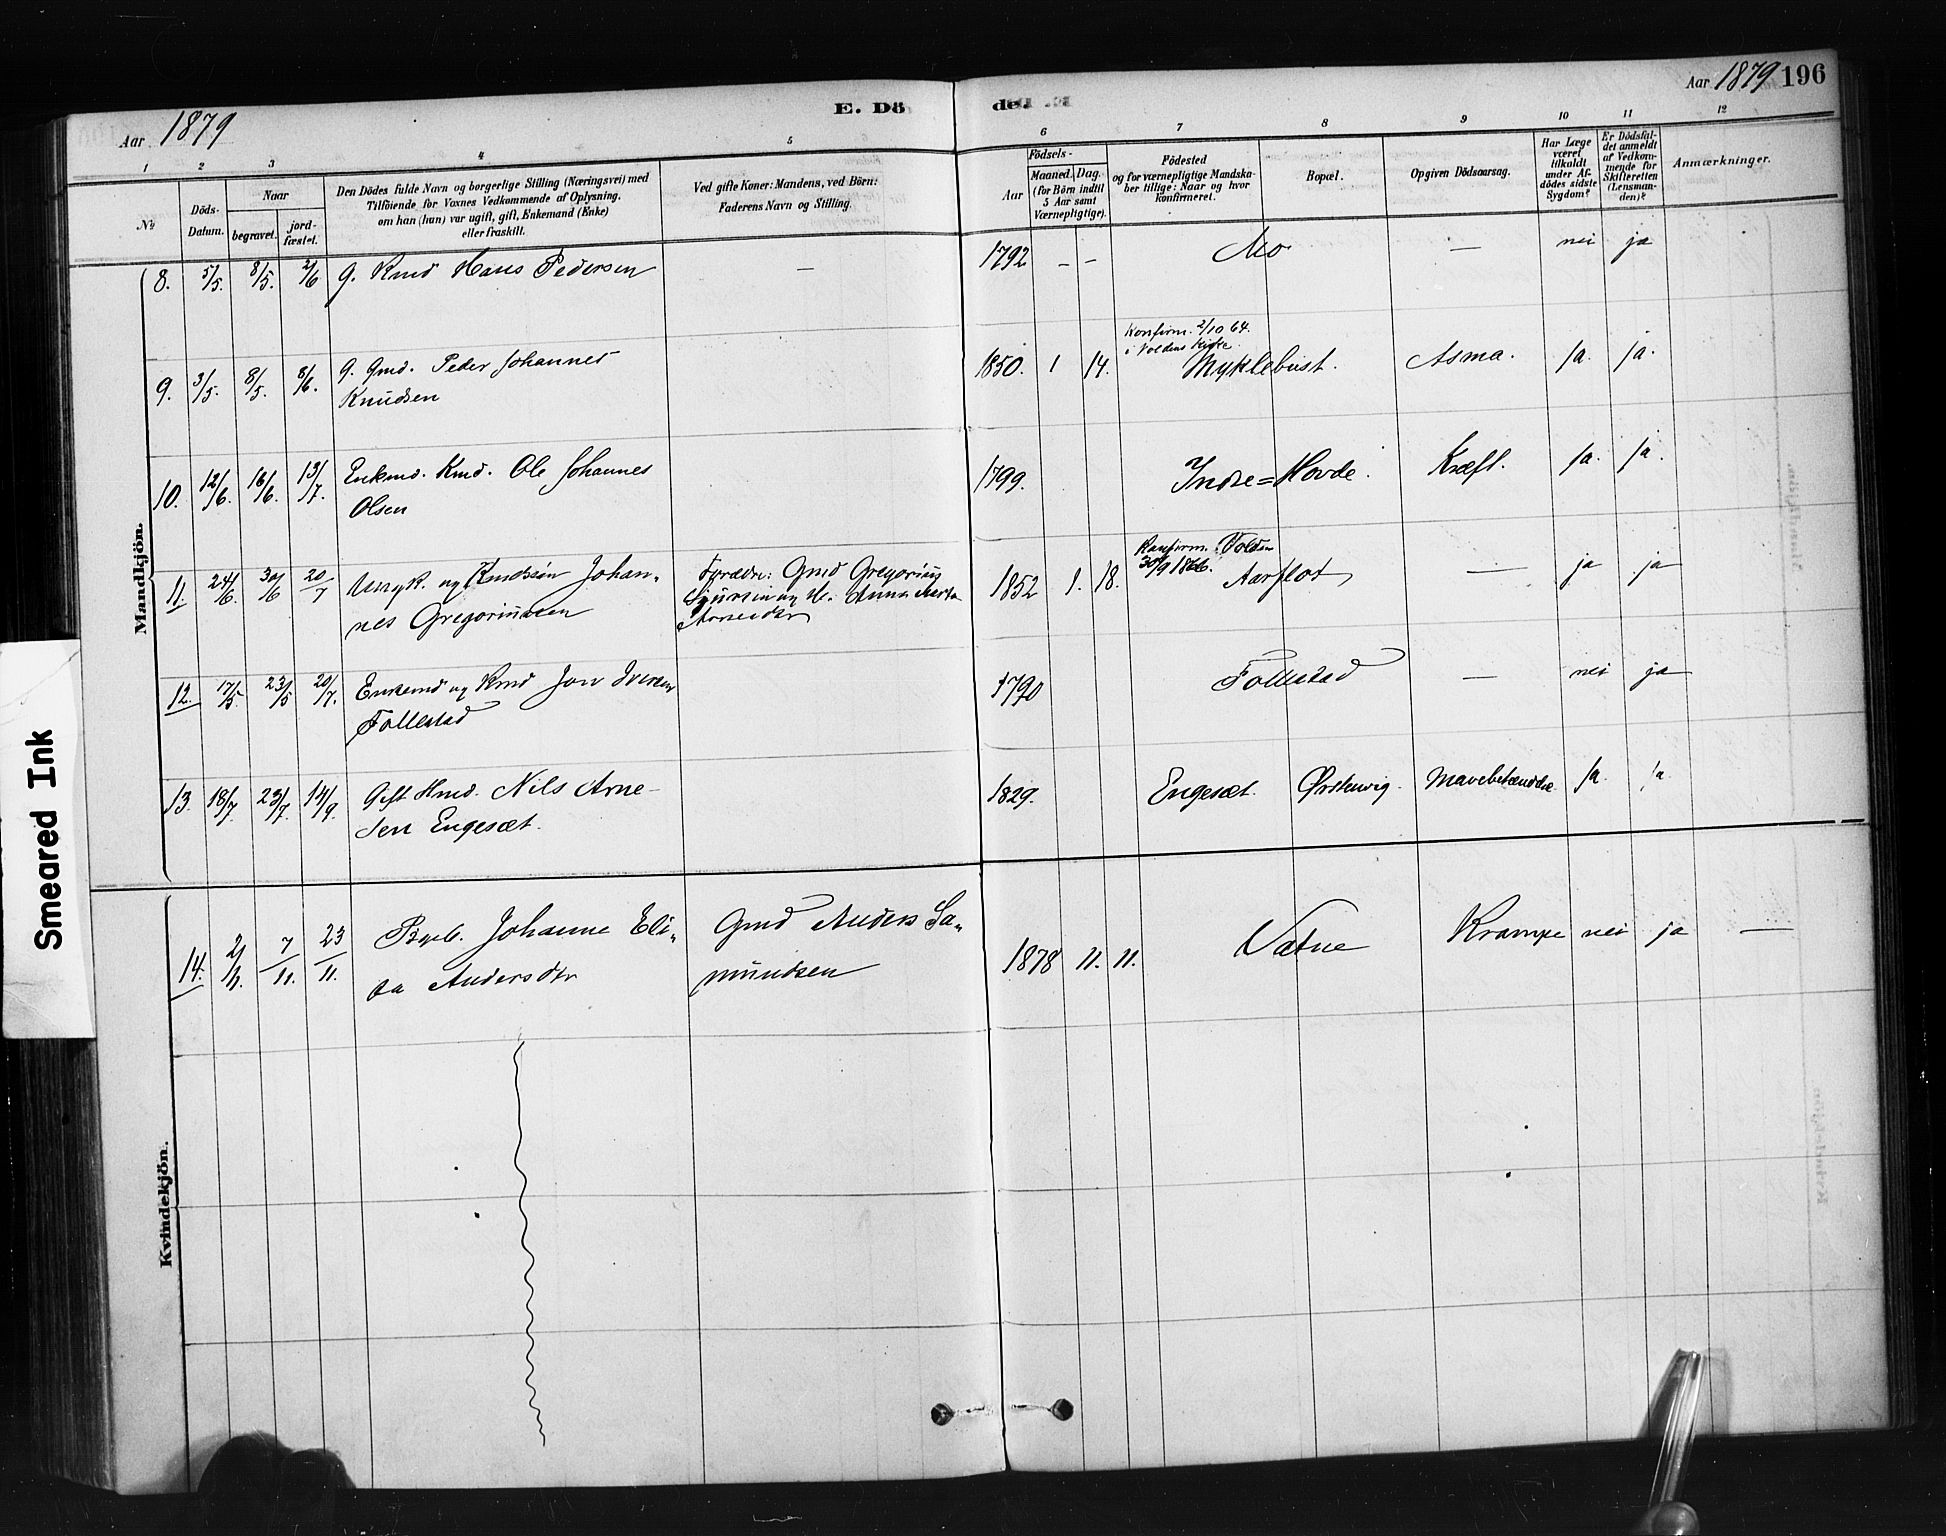 Aar 1879
E. Dö
de.
Aar 1879 196
1 2 3 4 5 6 7 8 9 10 11 12
Nº
Döds-
Datum.
Naar
begravet.
jord-
fæstet.
Den Dödes fulde Navn og borgerlige Stilling (Næringsvei) med
Tilföiende for Voxnes Vedkommende af Oplysning,
om han (hun) var ugift, gift, Enkemand (Enke)
eller fraskilt.
Ved gifte Koner: Mandens, ved Börn:
Faderens Navn og Stilling.
Födsels-
Aar
Maaned. Dag.
(for Börn indtil
5 Aar samt
Værnepligtige).
Födested
og for værnepligtige Mandska-
ber tillige: Naar og hvor
konfirmeret.
Bopæl.
Opgiven Dödsaarsag.
Har Læge
været
tilkaldt
under Af-
dødes sidste
Sygdom?
Er Dödsfal-
det anmeldt
af Vedkom-
mende for
Skifteretten
(Lensman-
den)?
Anmærkninger.
Mandkjön.
8. 5/5. 8/5. 2/6 g. Kmd Hans Pedersen — 1792 – – Mo — nei ja
Konfirm. 2/10 64.
i Voldens Kirke.
9. 3/5. 8/5. 8/6. g. Gmd. Peder Johannes 1850. 1 14. Myklebust. Asma. ja. ja.
Knudsen
10. 12/6. 16/6. 13/7. Enkmd. Kmd. Ole Johannes 1799. Indre=Hovde. Kræft. ja. ja.
Olsen
Konfirm. Volden
30/9 1866.
11. 24/6. 30/6 20/7 og Kmdssøn Johan- Forældre: Gmd Gregorius 1852 1. 18. Aarflot — ja ja
nes Gregoriussen Sjursen og H. Anna
Arnesdtr
12. 17/5. 23/5 20/7. Enkemd og Kmd Jon Iversen 1790 Follestad — nei ja
Follestad
13. 18/7. 23/7. 14/9. Gift Hmd. Nils Arne- 1829. Engesæt. Ørstenvig. Mavebetændelse ja. ja.
sen Engesæt.
Kvindekjön.
14. 2/11. 7/11. 23/11. Pigeb. Johanne Eli- Gmd Anders Sa- 1878 11. 11. Vatne Krampe nei ja —
sa Andersdtr mundsen
Smeared Ink